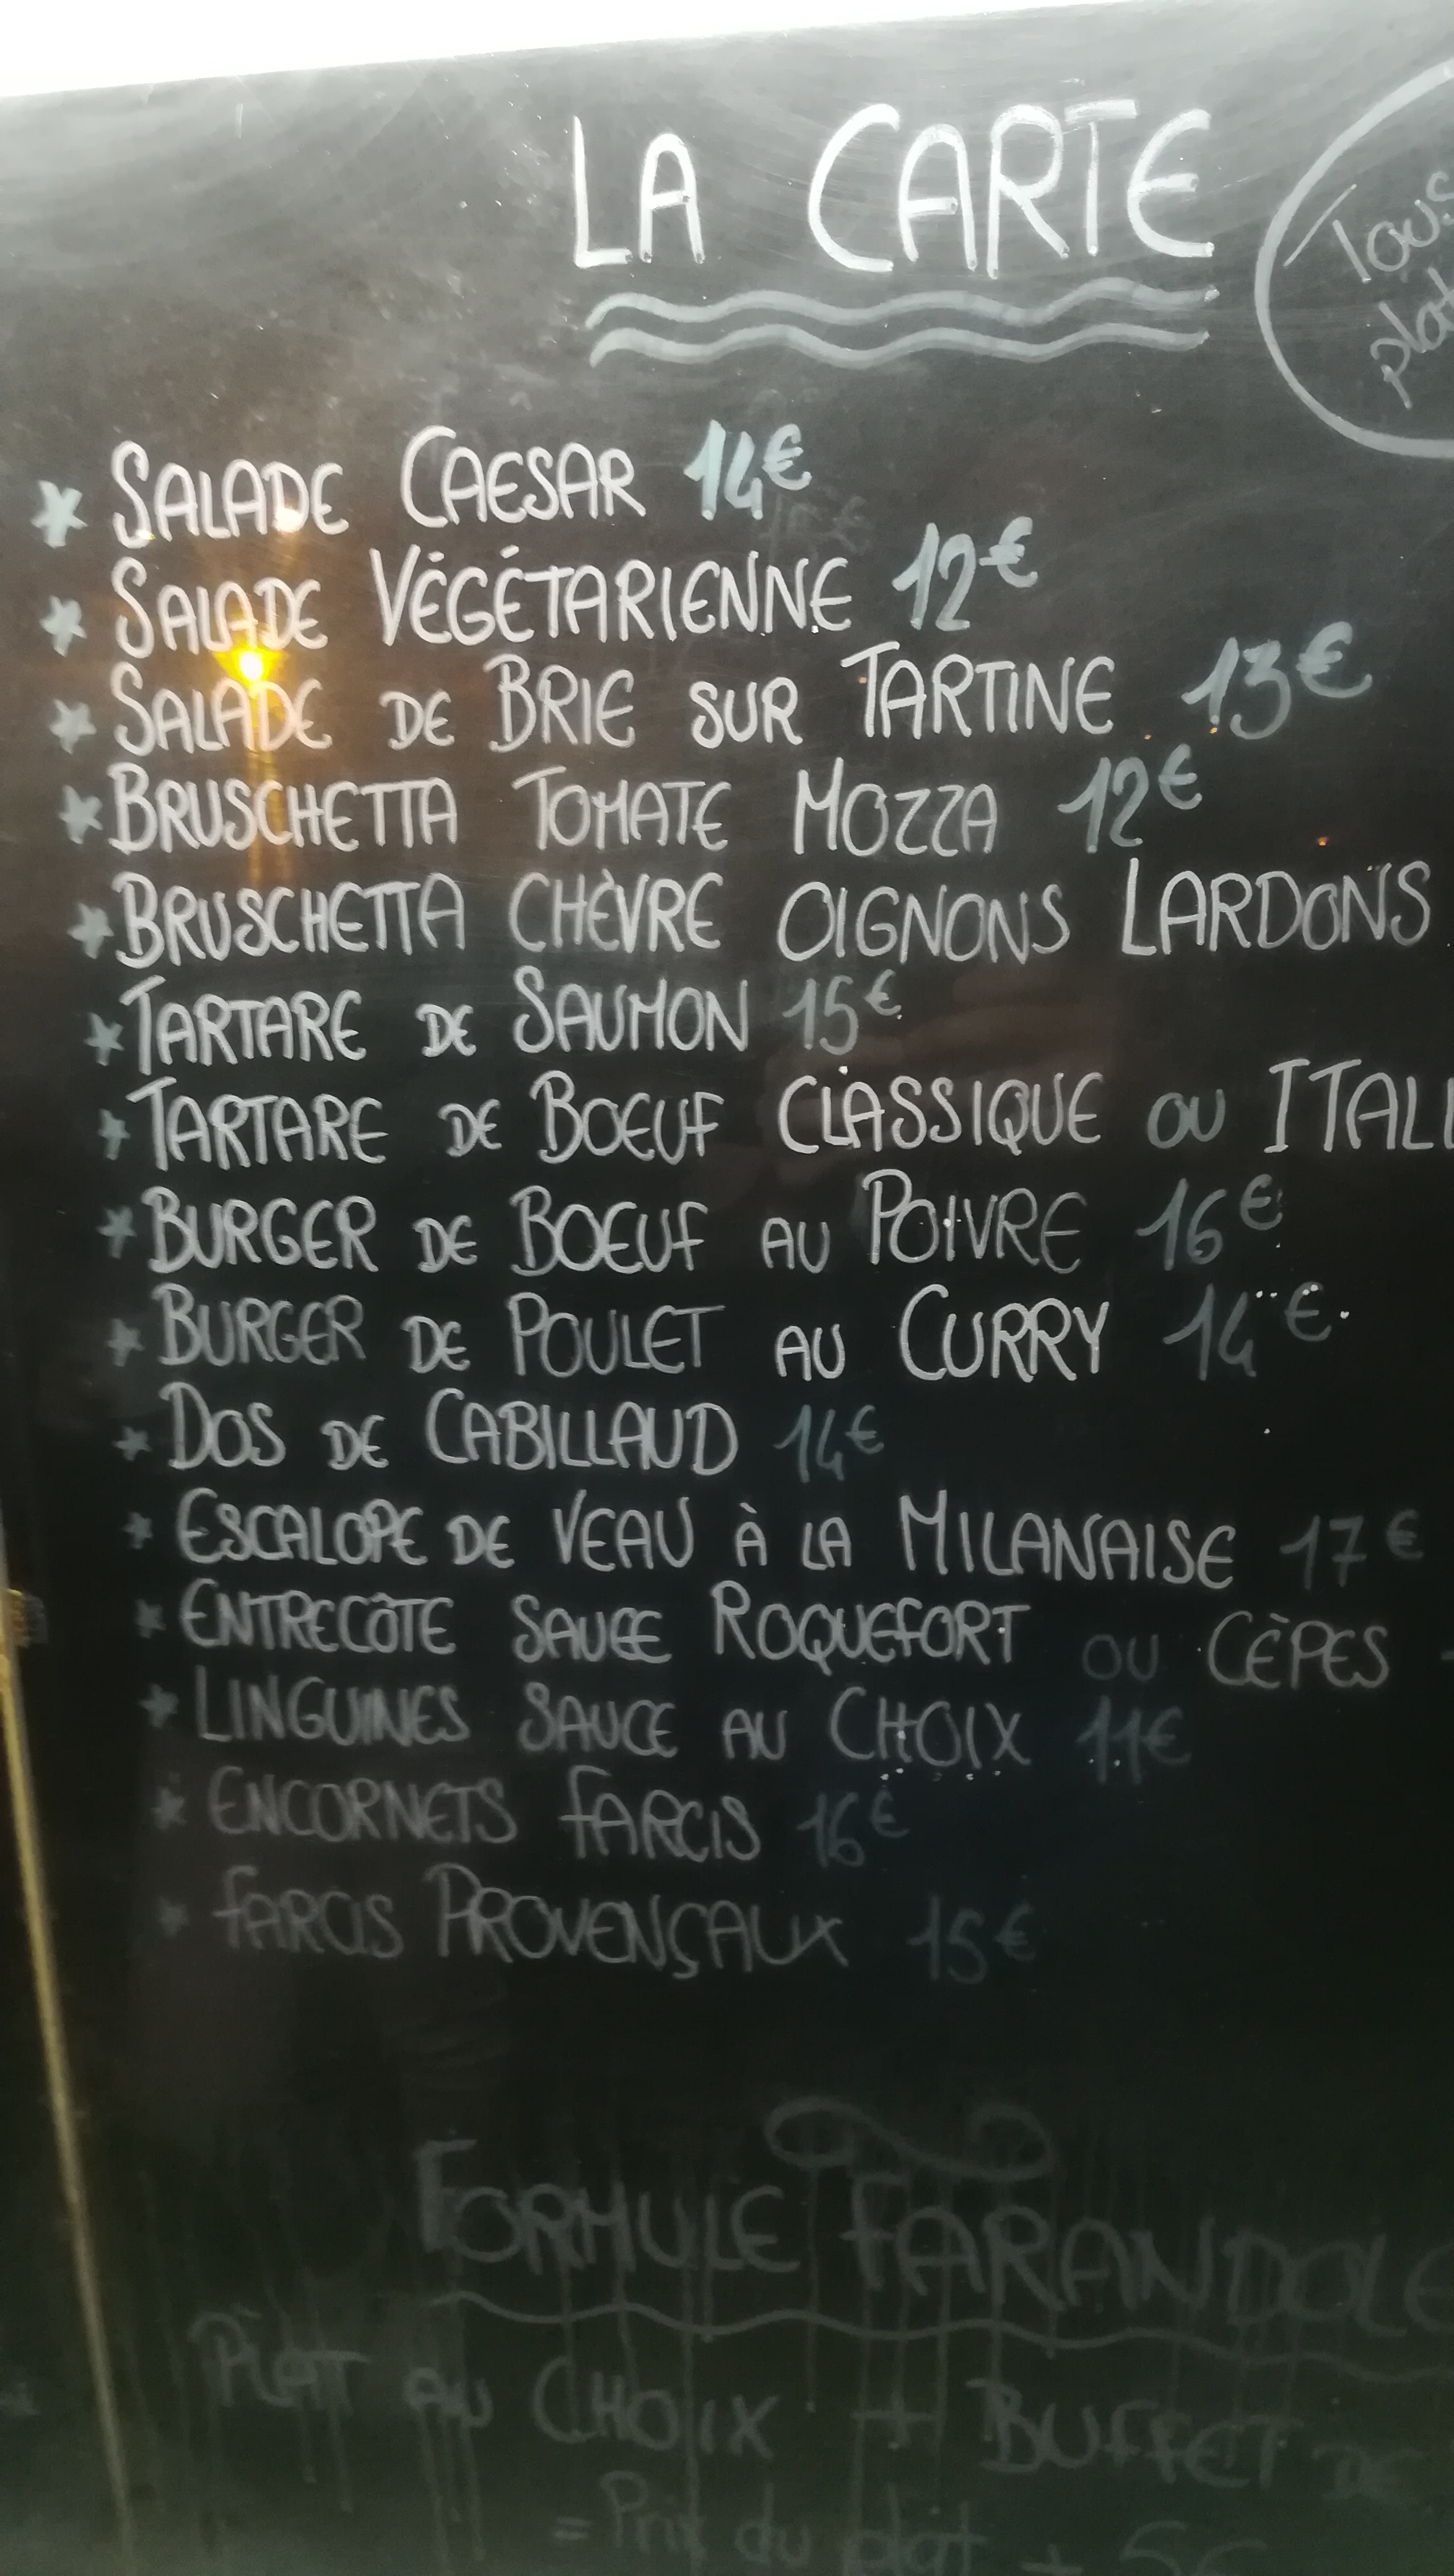 LA CARTE
Tous
* SALADE CAESAR 14€
* SALADE VÉGÉTARIENNE 12€
* SALADE DE BRIE SUR TARTINE 13€
* BRUSCHETTA TOMATE MOZZA 12€
* BRUSCHETTA CHÈVRE OIGNONS LARDONS
* TARTARE DE SAUMON 15€
* TARTARE DE BOEUF CLASSIQUE OU ITALI
* BURGER DE BOEUF AU POIVRE 16€
* BURGER DE POULET AU CURRY 14€
* DOS DE CABILLAUD 14€
* ESCALOPE DE VEAU À LA MILANAISE 17€
* ENTRECÔTE SAUCE ROQUEFORT OU CÈPES
* LINGUINES SAUCE AU CHOIX 11€
* ENCORNETS FARCIS 16€
* FARCIS PROVENÇAUX 15€
FORMULE FARANDOLE
PLAT AU CHOIX + BUFFET DE
= Prix du plat + 5€